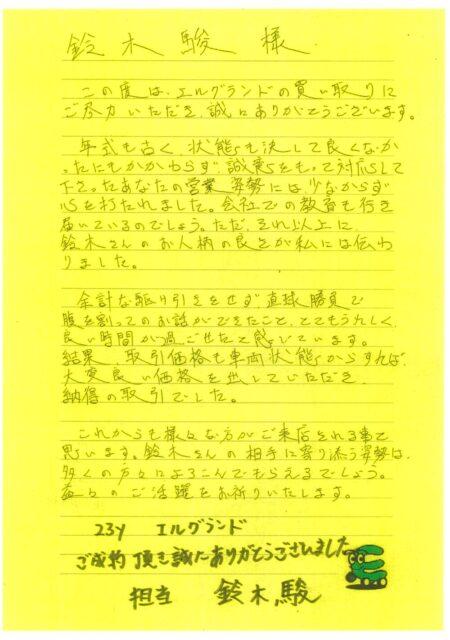 鈴木駿 様
この度は、エルグランドの買い取りに
ご尽力いただき、誠にありがとうございます。
年式も古く、状態も決して良くなか
ったにもかかわらず誠実をもって対応して
下さったあなたの営業姿勢には少なからず
心を打たれました。会社での教育も行き
届いているのでしょう。ただ、それ以上に
鈴木さんのお人柄の良さが私には伝わ
りました。
余計な駆け引きをせず、直球勝負で
腹を割ってのお話ができたこと、とてもうれしく、
良い時間が過ごせたと感じています。
結果、取引価格も車両状態からすれば、
大変良い価格を出していただき、
納得の取引でした。
これからも様々な方がご来店される事と
思います。鈴木さんの相手に寄り添う姿勢は、
多くの方々によろこんでもらえるでしょう。
益々のご活躍をお祈りいたします。
23y エルグランド
ご成約頂き誠にありがとうございました
担当 鈴木駿